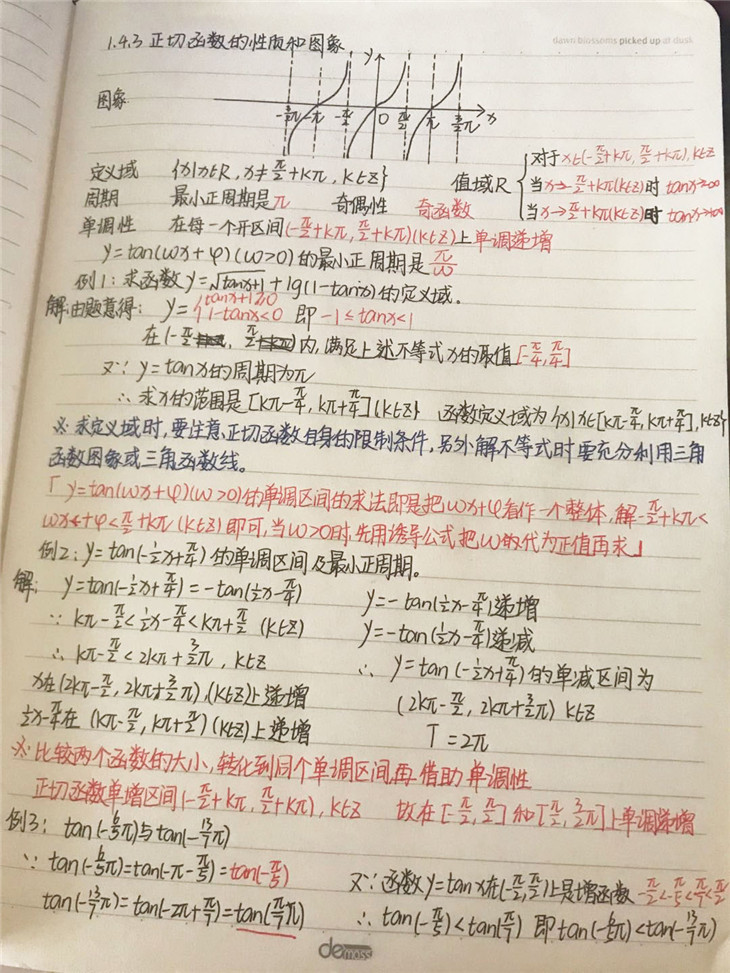 dawn blossoms picked up at dusk
1.4.3 正切函数的性质和图象
图象
y
-3/2π -π -π/2 0 π/2 π 3/2π x
定义域 {x|x∈R, x≠π/2+kπ, k∈Z} 值域R { 对于x∈(-π/2+kπ, π/2+kπ), k∈Z
当x→-π/2+kπ(k∈Z)时 tanx→-∞
周期 最小正周期是π 奇偶性 奇函数
当x→π/2+kπ(k∈Z)时 tanx→+∞
单调性 在每一个开区间(-π/2+kπ, π/2+kπ)(k∈Z)上单调递增
y=tan(ωx+φ)(ω>0)的最小正周期是π/ω
例1:求函数y=√tanx+1+lg(1-tanx)的定义域。
解:由题意得: y={ tanx+1≥0
1-tanx<0 即 -1≤tanx<1
在(-π/2, π/2)内,满足上述不等式x的取值[-π/4,π/4]
又∵y=tanx的周期为π
∴求x的范围是[kπ-π/4, kπ+π/4](k∈Z) 函数定义域为{x|x∈[kπ-π/4, kπ+π/4], k∈Z}
※求定义域时,要注意正切函数自身的限制条件,另外解不等式时要充分利用三角
函数图象或三角函数线。
「y=tan(ωx+φ)(ω>0)的单调区间的求法即是把ωx+φ看作一个整体,解-π/2+kπ<
ωx+φ<π/2+kπ(k∈Z)即可,当ω>0时,先用诱导公式把ω的代为正值再求」
例2:y=tan(-1/2x+π/4)的单调区间及最小正周期。
解: y=tan(-1/2x+π/4)=-tan(1/2x-π/4)
∵kπ-π/2<1/2x-π/4<kπ+π/2 (k∈Z)
∴kπ-π/2<2kπ+3/2π, k∈Z
x在(2kπ-π/2, 2kπ+3/2π),(k∈Z)上递增
1/2x-π/4在(kπ-π/2, kπ+π/2)(k∈Z)上递增
y=-tan(1/2x-π/4)递增
y=-tan(1/2x-π/4)递减
∴y=tan(-1/2x+π/4)的单减区间为
(2kπ-π/2, 2kπ+3/2π) k∈Z
T=2π
※比较两个函数的大小,转化到同个单调区间,再借助单调性
正切函数单增区间(-π/2+kπ, π/2+kπ), k∈Z 故在[-π/2, π/2]和[π/2, 3/2π]上单调递增
例3: tan(-6/5π)与tan(-13/7π)
∵tan(-6/5π)=tan(-π-π/5)=tan(-π/5)
tan(-13/7π)=tan(-2π+π/7)=tan(π/7π)
又∵函数y=tanx在(-π/2,π/2)上是增函数 -π/2<-π/5<π/7<π/2
∴tan(-π/5)<tan(π/7) 即tan(-6/5π)<tan(-13/7π)
demoss